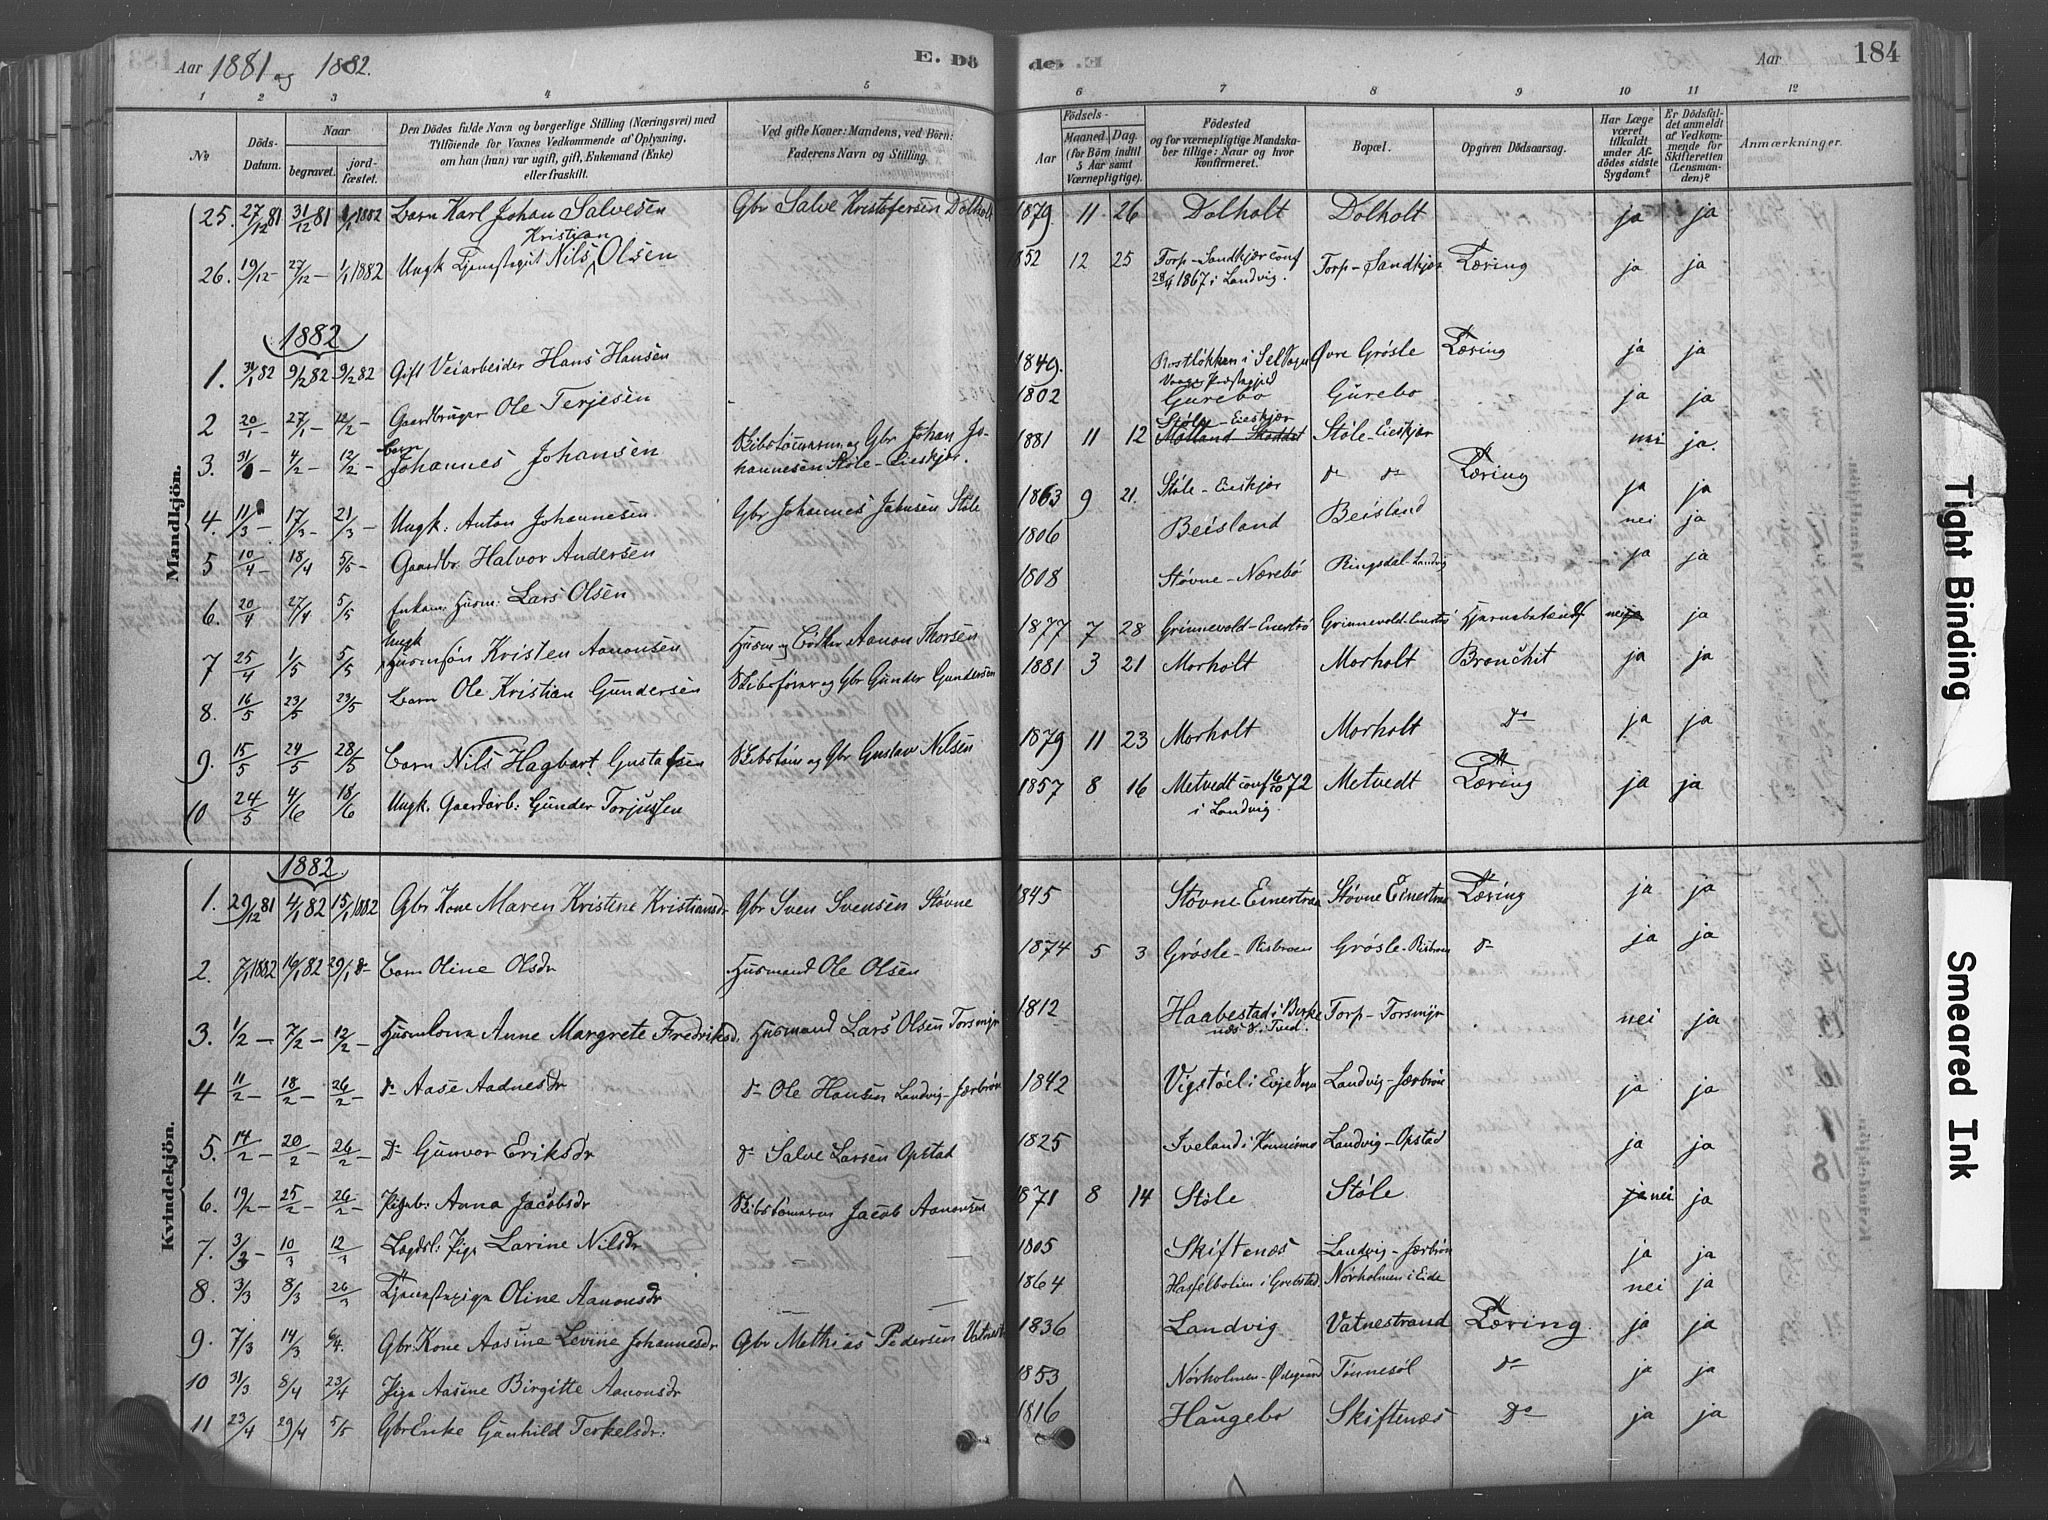 Aar 1881 og 1882. E. Dö
de. E. Aar 184
1 2 3 4 5 6 7 8 9 10 11 12
№ Döds-Datum. Naar begravet. jord-fæstet. Den Dödes fulde Navn og borgerlige Stilling (Næringsvei) med Tilföiende for Voxnes Vedkommende af Oplysning, om han (hun) var ugift, gift, Enkemand (Enke) eller fraskilt. Ved gifte Koner: Mandens, ved Börn: Faderens Navn og Stilling. Födsels- Aar Maaned. Dag. (for Börn indtil 5 Aar samt Værnepligtige). Födested og for værnepligtige Mandskaber tillige: Naar og hvor konfirmeret. Bopæl. Opgiven Dödsaarsag. Har Læge været tilkaldt under Afdödes sidste Sygdom? Er Dödsfaldet anmeldt af Vedkommende for Skifteretten (Lensmanden)? Anmærkninger.
Mandkjön.
25. 27/12 81 31/12 81 1/1 1882 Barn Karl Johan Salvesen Gbr Salve Kristofersen Dolholt 1879 11 26 Dolholt Dolholt ja ja
26. 19/12 – 27/12 – 1/1 1882 Ungk Tjenestegut Nils Kristian Olsen 1852 12 25 Torp-Sandkjær conf 28/4 1867 i Landvig. Torp-Sandkjær Tæring ja ja
1882
1. 31/1 82 9/2 82 9/2 82 Gift Veiarbeider Hans Hansen 1849. Øvre Grösle Tæring ja ja
2 20/1 – 27/1 – 12/2 – Gaardbruger Ole Terjesen 1802 Gurebo Gurebo ja ja
3. 31/ – 4/2 – 12/2 – Barn Johannes Johansen og Gbr Johan Johannesen Støle-Eieskjær. 1881 11 12 Støle-Eieskjær Støle-Eieskjær nei ja.
4. 11/3 – 17/3 – 21/3 – Ungk: Anton Johannesen Gbr Johannes Støle 1863 9 21. Støle-Eieskjær do do Tæring ja ja
5 10/4 – 18/4 5/5 – Gaardbr. Halvor Andersen 1806 Beisland Beisland nei ja
6. 20/4 27/4 5/5 Enkem: Husm: Lars Olsen 1808 Støvne-Nærebö Ringsdal-Landvig ja ja
7 25/4 1/5 5/5 Ungk Husmsøn Kristen Aanonsen Husm og Aanon Thorsen 1877 7 28 Grinnevold- Grinnevold- nei ja
8. 16/5 23/5 23/5 Barn Ole Kristian Gundersen og Gbr Gunder Gundersen 1881 3 21 Morholt Morholt Bronchit ja ja
9. 15/5 24/5 28/5 Barn Nils Hagbart Gustafsen og Gbr Gustav Nilsen 1879 11 23 Morholt Morholt Do ja ja
10 24/5 4/6 18/6 Ungk. Gaardarb: Gunder Torjussen 1857 8 16 Metvedt conf 6/10 72 i Landvig. Metvedt Tæring ja ja
Kvindekjön.
1882
1. 29/12 81 4/1 82 15/1 1882 Gbr Kone Maren Kristine Kristiansdr Gbr Sven Svensen Støvne 1845 Støvne Einertraa Støvne Einertraa Tæring ja ja
2. 7/1 1882 16/1 82 29/1 do Barn Oline Olsdr Husmand Ole Olsen 1874 5 3 Grösle-Risbroen Grösle-Risbroen do ja ja
3. 1/2 – 7/2 – 12/2 – Husmkona Anne Margrete Fredriksd. Husmand Lars Olsen Torsmyr 1812 Haabestad i Birkenæs Torp-Torsmyr nei ja
4 11/2 – 18/2 – 26/2 – do Aase Aadnesdr do Ole Hansen Landvig-Jærbrøn 1842 Vigstøel i Evje Landvig-Jærbrøn ja ja
5. 14/2 – 20/2 – 26/2 – Do Gunvor Eriksdr do Salve Larsen Opstad 1825 Iveland i Landvig-Opstad ja ja
6. 19/2 – 25/2 – 26/2 – Anna Jacobsdr Jacob Aanonsen 1871 8 14 Støle Støle ja nei ja
7. 3/3 – 10/3 12/3 Lægdsl: Pige Larine Nilsdr – – 1805 Skiftenæs Landvig-Jærbrøn ja ja
8. 3/3 8/3 26/3 Tjenestepige Oline Aanonsdr – – 1864 i Grebstad. Nørholmen i Eide nei ja
9. 7/3 14/3 6/4. Gbr: Kone Aasine Levine Johannesdr Gbr Mathias Pedersen 1836 Landvig Vatnestrand Tæring. ja ja
10 31/3 8/4 23/4 Pige Aasine Birgitte Aanonsdr 1853 Nørholmen-Ødegaard Tønnesøl do ja ja
11 23/4 29/4 5/5 Gbr Enke Gunhild Terkelsdr. 1816 Haugebo Skiftenæs Do ja ja
Tight Binding
Smeared Ink